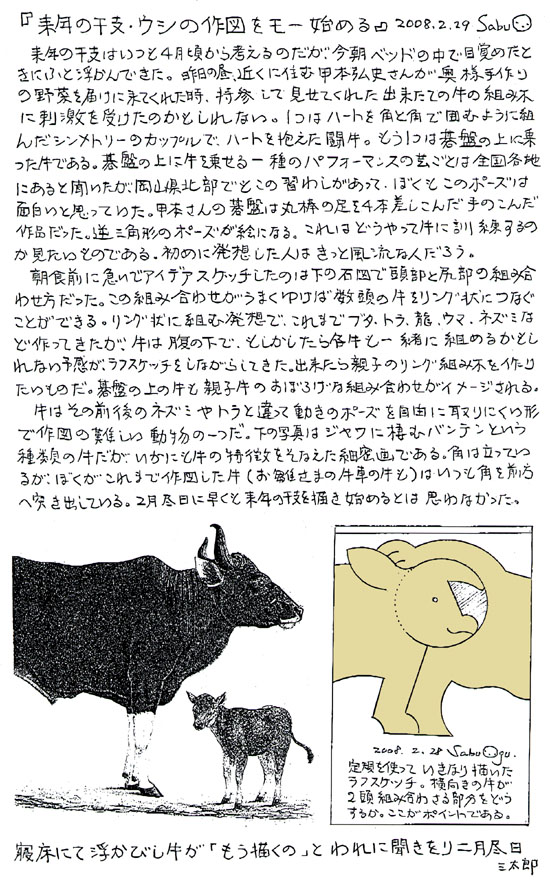 『来年の干支・ウシの作図をモー始める』 2008.2.29 Sabu
来年の干支はいつも4月頃から考えるのだが、今朝ベッドの中で目覚めたと
きにふと浮かんできた。昨日の昼、近くに住む甲本弘史さんが奥様手作り
の野菜を届けに来てくれた時、持参して見せてくれた出来たての牛の組み木
に刺激を受けたのかもしれない。1つはハートを角と角で囲むように組
んだシンメトリーのカップルで、ハートを抱えた闘牛。もう1つは碁盤の上に乗
った牛である。碁盤の上に牛を乗せる一種のパフォーマンスの芸ごとは全国各地
にあると聞いたが、岡山県北部でもこの習わしがあって、ぼくもこのポーズは
面白いと思っていた。甲本さんの碁盤は丸棒の足を4本差しこんだ手のこんだ
作品だった。逆三角形のポーズが絵になる。これはどうやって牛に訓練するの
か見たいものである。初めに発想した人はきっと風流なんだろう。
朝食前に急いでアイデアスケッチしたのは下の右図で頭部と尻部の組み合
わせ方だった。この組み合わせがうまくゆけば数頭の牛をリング状につなぐ
ことができる。リング状に組む発想で、これまでブタ、トラ、龍、ウマ、ネズミな
ど作ってきたが、牛は腹の下で、もしかしたら各牛も一緒に組めるかもし
れない予感が、ラフスケッチをしながらしてきた。出来たら親子のリング組み木を作り
たいものだ。碁盤の上の牛も親子牛のおぼろげな組み合わせがイメージされる。
牛はその前後のネズミやトラと違って動きのポーズを自由に取りにくい形
で作図の難しい動物の一つだ。下の写真はジャワに棲むバンテンという
種類の牛だが、いかにも牛の特徴をそなえた細密画である。角は立ってい
るが、ぼくがこれまで作図した牛(お雛さまの牛車の牛も)はいつも角を前方
へ突き出している。2月尽日に早くも来年の干支を描き始めるとは思わなかった。
2008.2.28 Sabu Ogu.
定規を使っていきなり描いた
ラフスケッチ。横向きの牛が
2頭組み合わさる部分をどう
するか。ここがポイントである。
寝床にて浮かびし牛が「もう描くの」とわれに聞きをり二月尽日
三太郎